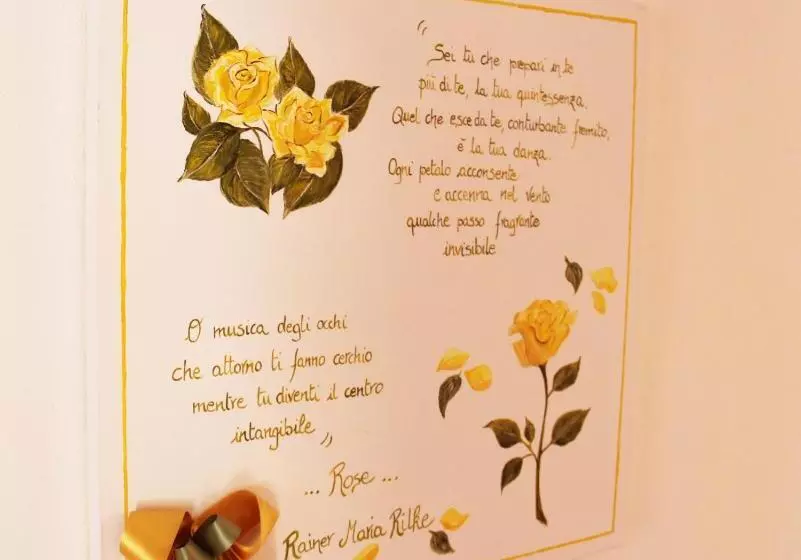 “
Sei tu che prepari in te
più di te, la tua quintessenza.
Quel che esce da te, conturbante fremito,
è la tua danza.
Ogni petalo acconsente
e accenna nel vento
qualche passo fragrante
invisibile
O musica degli occhi
che attorno ti fanno cerchio
mentre tu diventi il centro
intangibile ”
... Rose ...
Rainer Maria Rilke